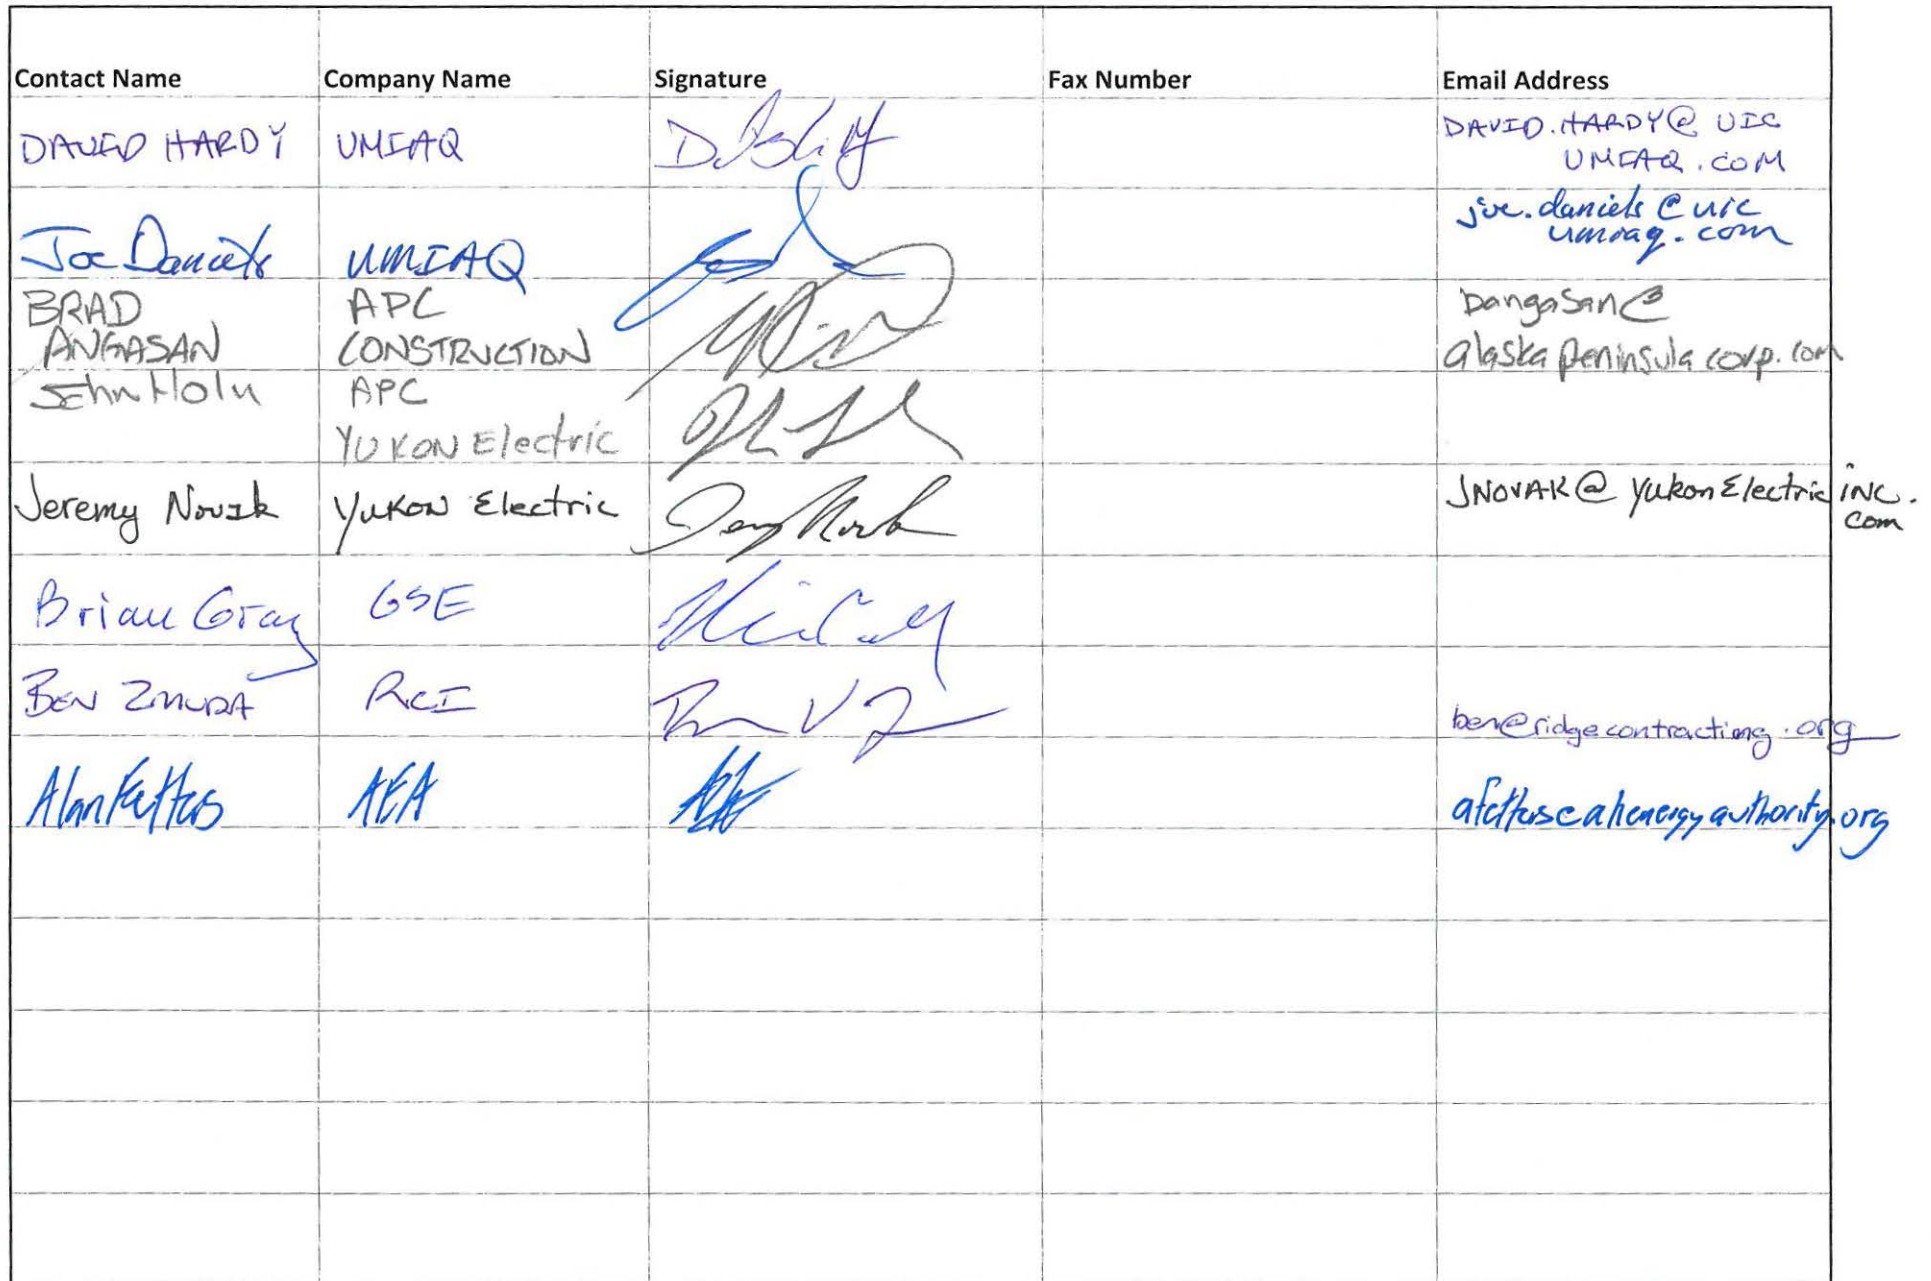 Contact Name Company Name Signature Fax Number Email Address
DAVID HARDY UMIAQ DAVID.HARDY@ UIC
UMIAQ.COM
Joe Daniels UMIAQ joe.daniels@uic
umiaq.com
BRAD APC bangasan@
ANGASAN CONSTRUCTION alaskapeninsulacorp.com
John Holn APC
YUKON Electric
Jeremy Novak YUKON Electric JNOVAK@ YukonElectric inc.
com
Brian Gray GSE
BEN ZMUDA RCI ben@ridgecontracting.org
Alan Fetters AEA afetters@akenergyauthority.org